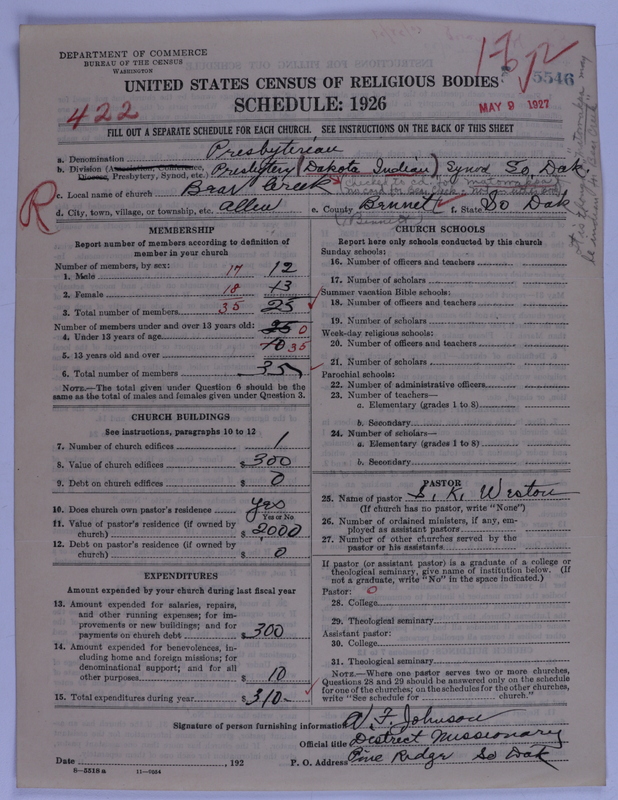 DEPARTMENT OF COMMERCE
BUREAU OF THE CENSUS
WASHINGTON
5546
UNITED STATES CENSUS OF RELIGIOUS BODIES
SCHEDULE: 1926
422
MAY 9 1927
FILL OUT A SEPARATE SCHEDULE FOR EACH CHURCH. SEE INSTRUCTIONS ON THE BACK OF THIS SHEET
a. Denomination Presbyterian
b. Division (Association, Conference, Diocese, Presbytery, Synod, etc.) Presbytery (Dakota Indian) Synod So. Dak
c. Local name of church Bear Creek
d. City, town, village, or township, etc. Allen e. County Bennett f. State So Dak
(Bennett)
R
MEMBERSHIP
Report number of members according to definition of member in your church
Number of members, by sex:
1. Male 17 12
2. Female 18 13
3. Total number of members 35 25
Number of members under and over 13 years old:
4. Under 13 years of age 25 0
5. 13 years old and over 10 35
6. Total number of members 35
NOTE.—The total given under Question 6 should be the same as the total of males and females given under Question 3.
CHURCH BUILDINGS
See instructions, paragraphs 10 to 12
7. Number of church edifices 1
8. Value of church edifices $ 300
9. Debt on church edifices $ 0
10. Does church own pastor's residence yes
Yes or No
11. Value of pastor's residence (if owned by church) $ 2000
12. Debt on pastor's residence (if owned by church) $ 0
EXPENDITURES
Amount expended by your church during last fiscal year
13. Amount expended for salaries, repairs, and other running expenses; for improvements or new buildings; and for payments on church debt $ 300
14. Amount expended for benevolences, including home and foreign missions; for denominational support; and for all other purposes $ 10
15. Total expenditures during year $ 310-
CHURCH SCHOOLS
Report here only schools conducted by this church
Sunday schools:
16. Number of officers and teachers
17. Number of scholars
Summer vacation Bible schools:
18. Number of officers and teachers
19. Number of scholars
Week-day religious schools:
20. Number of officers and teachers
21. Number of scholars
Parochial schools:
22. Number of administrative officers
23. Number of teachers—
a. Elementary (grades 1 to 8)
b. Secondary
24. Number of scholars—
a. Elementary (grades 1 to 8)
b. Secondary
PASTOR
25. Name of pastor S. K. Weston
(If church has no pastor, write "None")
26. Number of ordained ministers, if any, employed as assistant pastors
27. Number of other churches served by the pastor or his assistants
If pastor (or assistant pastor) is a graduate of a college or theological seminary, give name of institution below. (If not a graduate, write "No" in the space indicated.)
Pastor: 0
28. College
29. Theological seminary
Assistant pastor:
30. College
31. Theological seminary
NOTE.—Where one pastor serves two or more churches, Questions 28 and 29 should be answered only on the schedule for one of the churches; on the schedules for the other churches, write "See schedule for church."
Signature of person furnishing information W. F. Johnson
Official title District Missionary
Date , 192 P. O. Address Pine Ridge So Dak
8—5518 a 11—9084